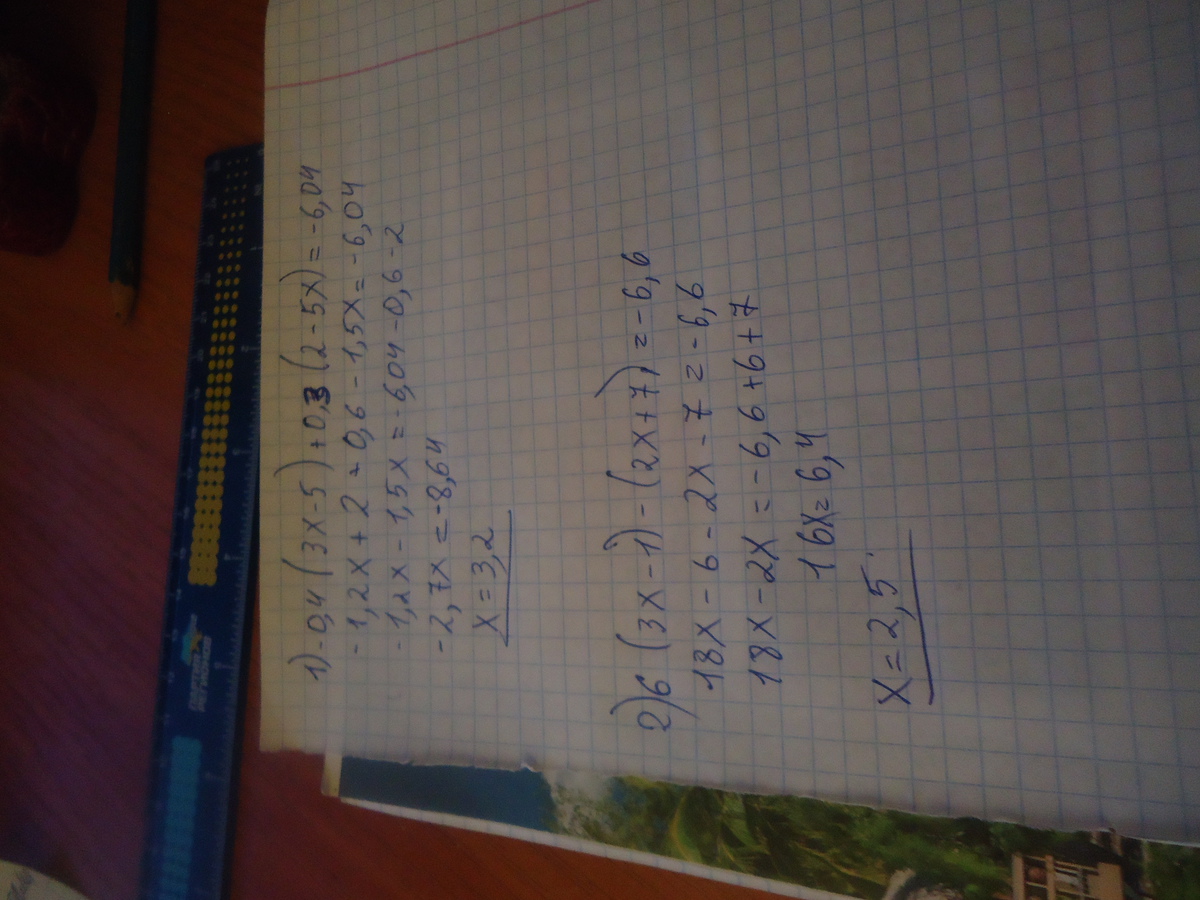 1) -0,4 (3x-5) +0,3 (2-5x) = -6,04
-1,2x + 2 = 0,6 - 1,5x = -6,04
-1,2x - 1,5x = -6,04 -0,6 -2
-2,7x = -8,64
x = 3,2
2) 6 (3x-1) - (2x+7) = -6,6
18x - 6 - 2x - 7 = -6,6
18x - 2x = -6,6 +6 +7
16x = 6,4
x = 2,5